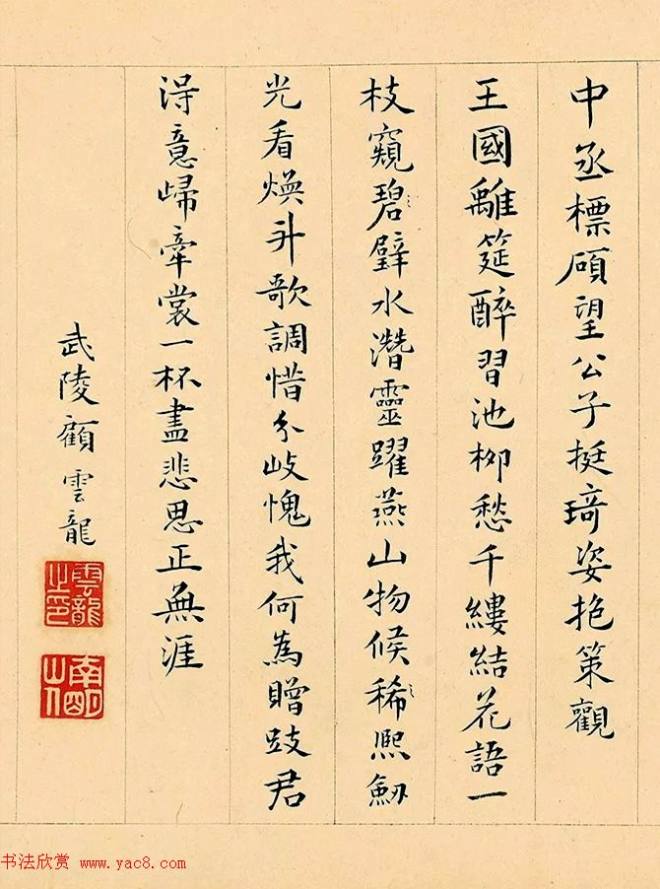 中丞標碩望公子挺琦姿抱策觀
王國離筵醉習池柳愁千縷結花語一
枝窺碧璧水潛靈躍燕山物候稀熙劒
光看煥斗歌調惜分歧愧我何為贈豉君
得意歸牽裳一杯盡悲思正無涯
武陵顧雲龍
雲龍之印
南明山人
书法欣赏 www.yac8.com